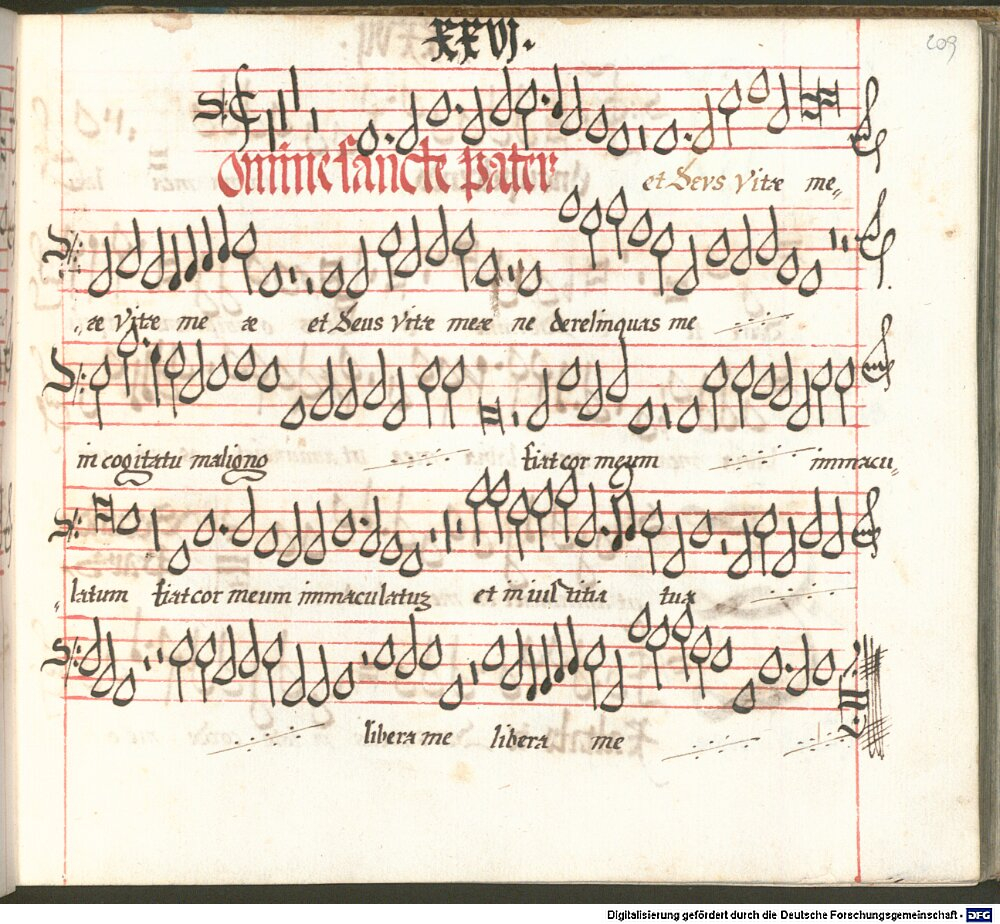 XXVI.
209
omine sancte Pater et Deus Vitæ me„
„æ Vitæ me æ et Deus Vitæ meæ ne derelinquas me
in cogitatu maligno fiat cor meum immacu„
„latum fiat cor meum immaculatuȝ et in iustitia tua
libera me libera me
Digitalisierung gefördert durch die Deutsche Forschungsgemeinschaft - DFG